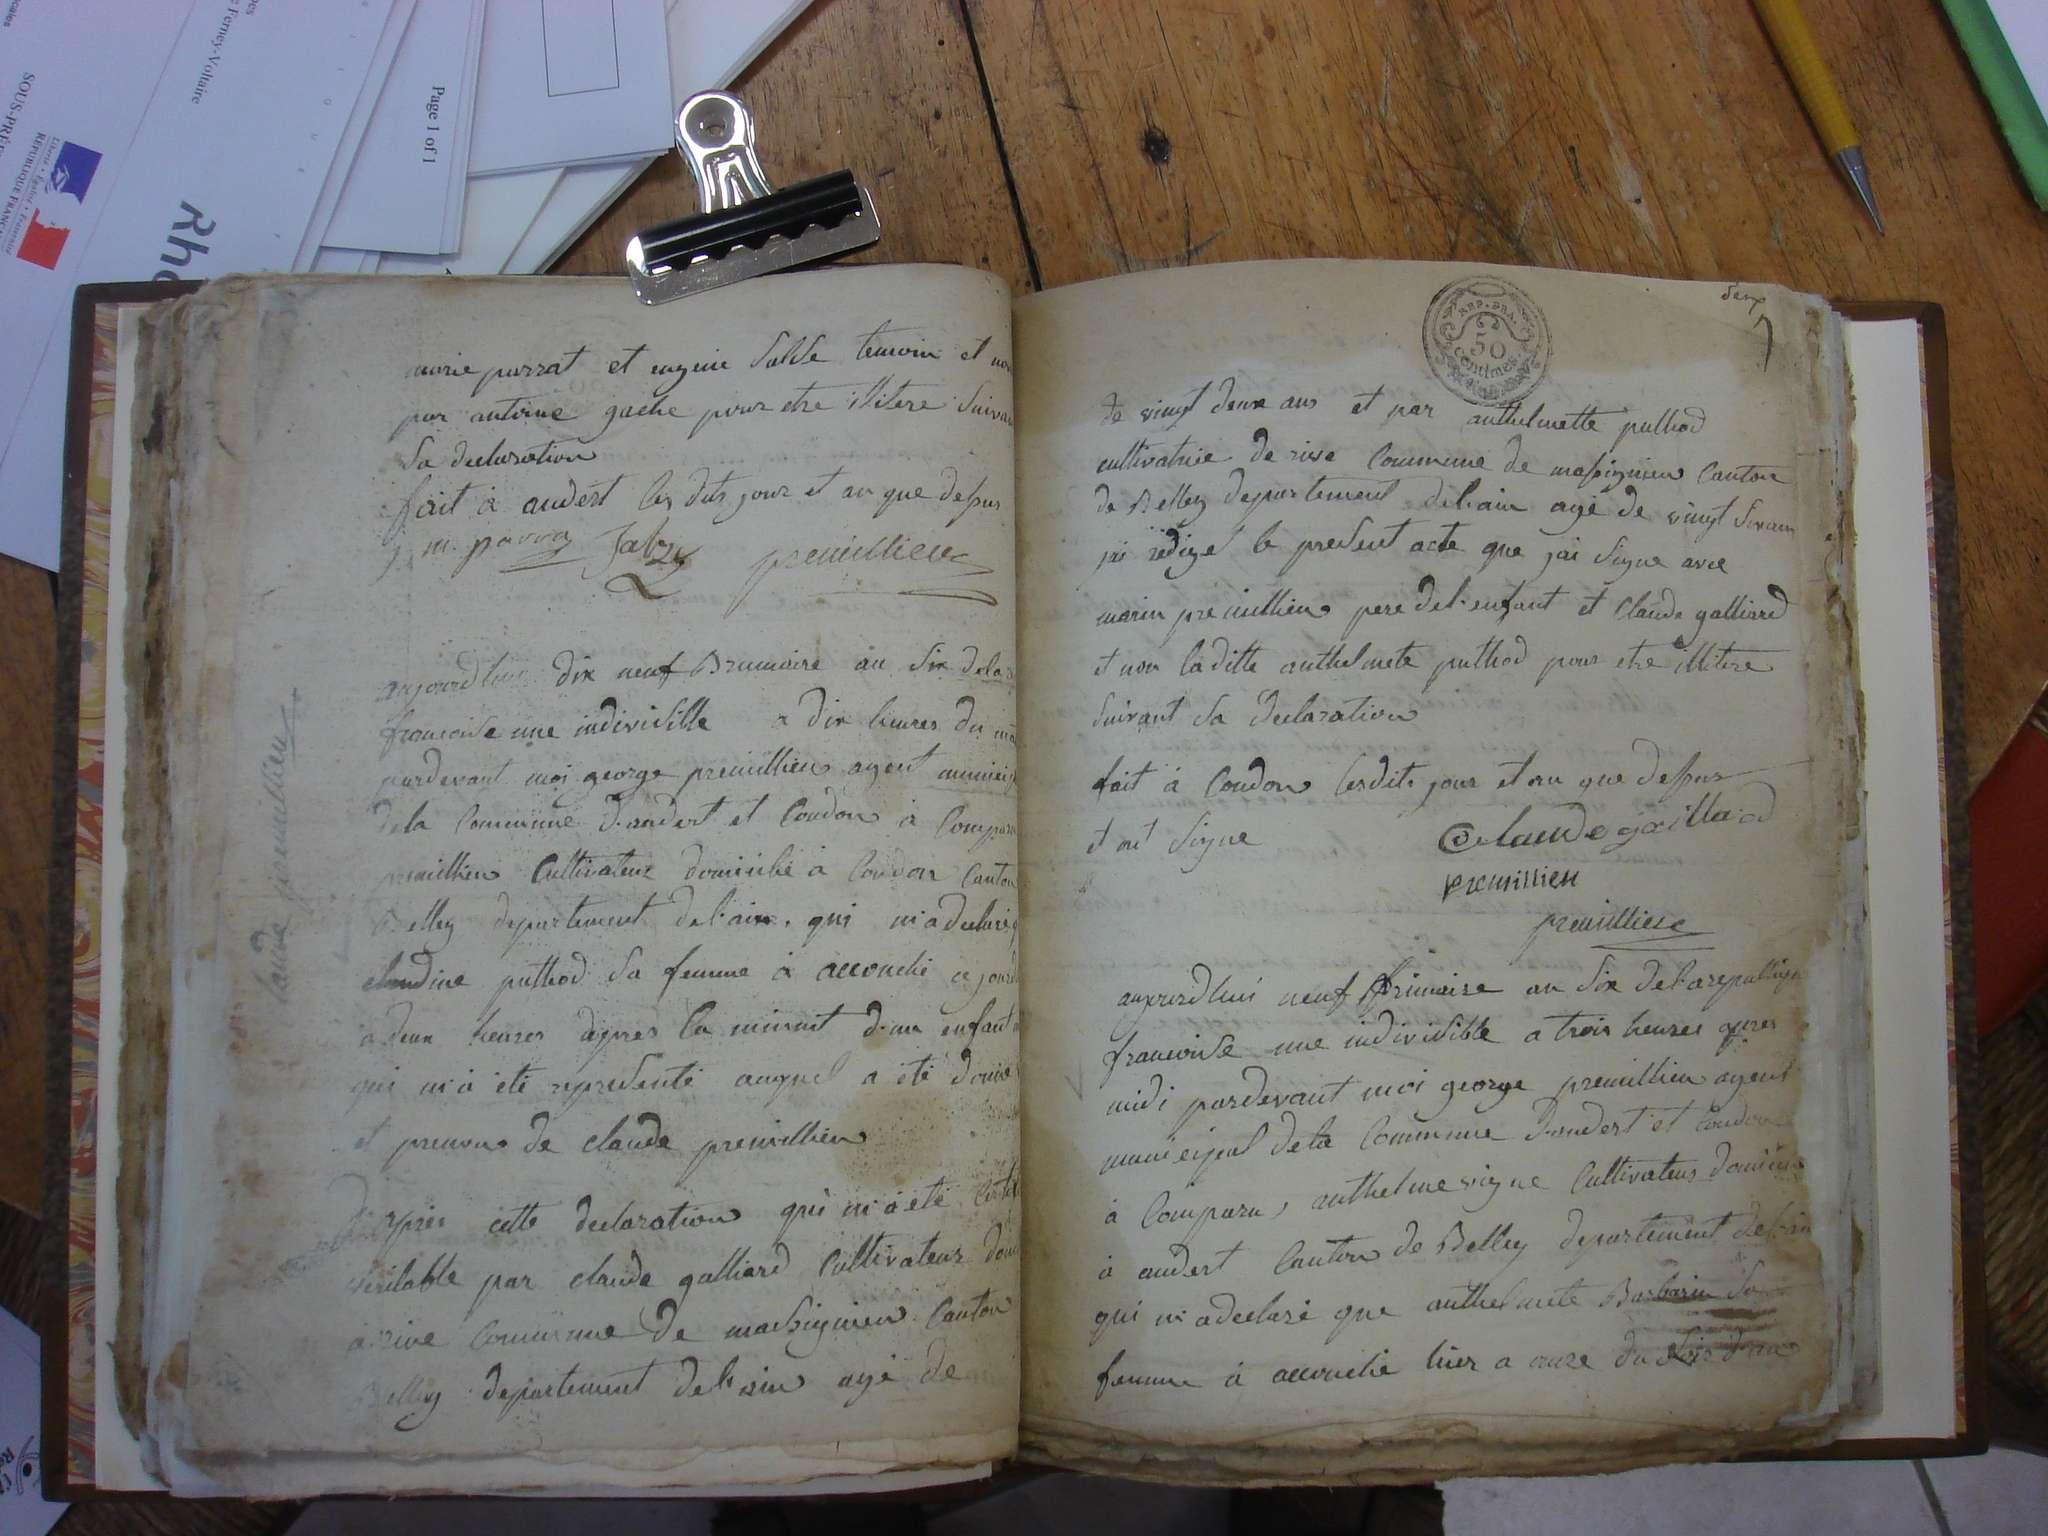 Ferney-Voltaire
SOUS-PRÉ
Liberté • Égalité • Fraternité
RÉPUBLIQUE FRANÇAISE
Page 1 of 1
marie purrat et eugene temoin et non
par antoine gache pour etre illitere suivant
sa declaration
fait à andert les dits jour et an que dessus
j. m. parra premillieu
claude premillieu
aujourdhui dix neuf Brumaire an six de la
francoise une indivisible a dix heures du
pardevant moi george premillieu agent
dela Commune d'andert et Condon à Comparu
premillieu Cultivateur domicilié à Condon Canton
Belley departement del'ain, qui m'a declaré
claudine puthod sa femme à accouché
a deux heures apres la minuit d'un enfant
qui m'à été representé auquel a été donné
et prenom de claude premillieu
D'apres cette declaration qui m'à été
veritable par claude galliard Cultivateur
a rive Commune de massignieu Canton
Belley departement del'ain agé de
REP. FRA.
50
centimes
de vingt deux ans et par anthelmette puthod
cultivatrice de rive Commune de massignieu Canton
de Belley departement del'ain agé de vingt
j'ai redigé le present acte que j'ai signe avec
marin premillieu pere del'enfant et claude galliard
et non laditte anthelmete puthod pour etre illitere
suivant sa declaration
fait à Condon lesdits jour et an que dessus
et ont signe Claude gaillard
premillieu
premillieu
aujourdhui neuf frimaire an six de la republique
francoise une indivisible a trois heures apres
midi pardevant moi george premillieu agent
municipal dela Commune d'andert et Condon
à Comparu, anthelme vigne Cultivateur
à andert Canton de Belley departement del'ain
qui m'a declaré que anthelmete Barbarin sa
femme à accouché hier a onze du soir d'un